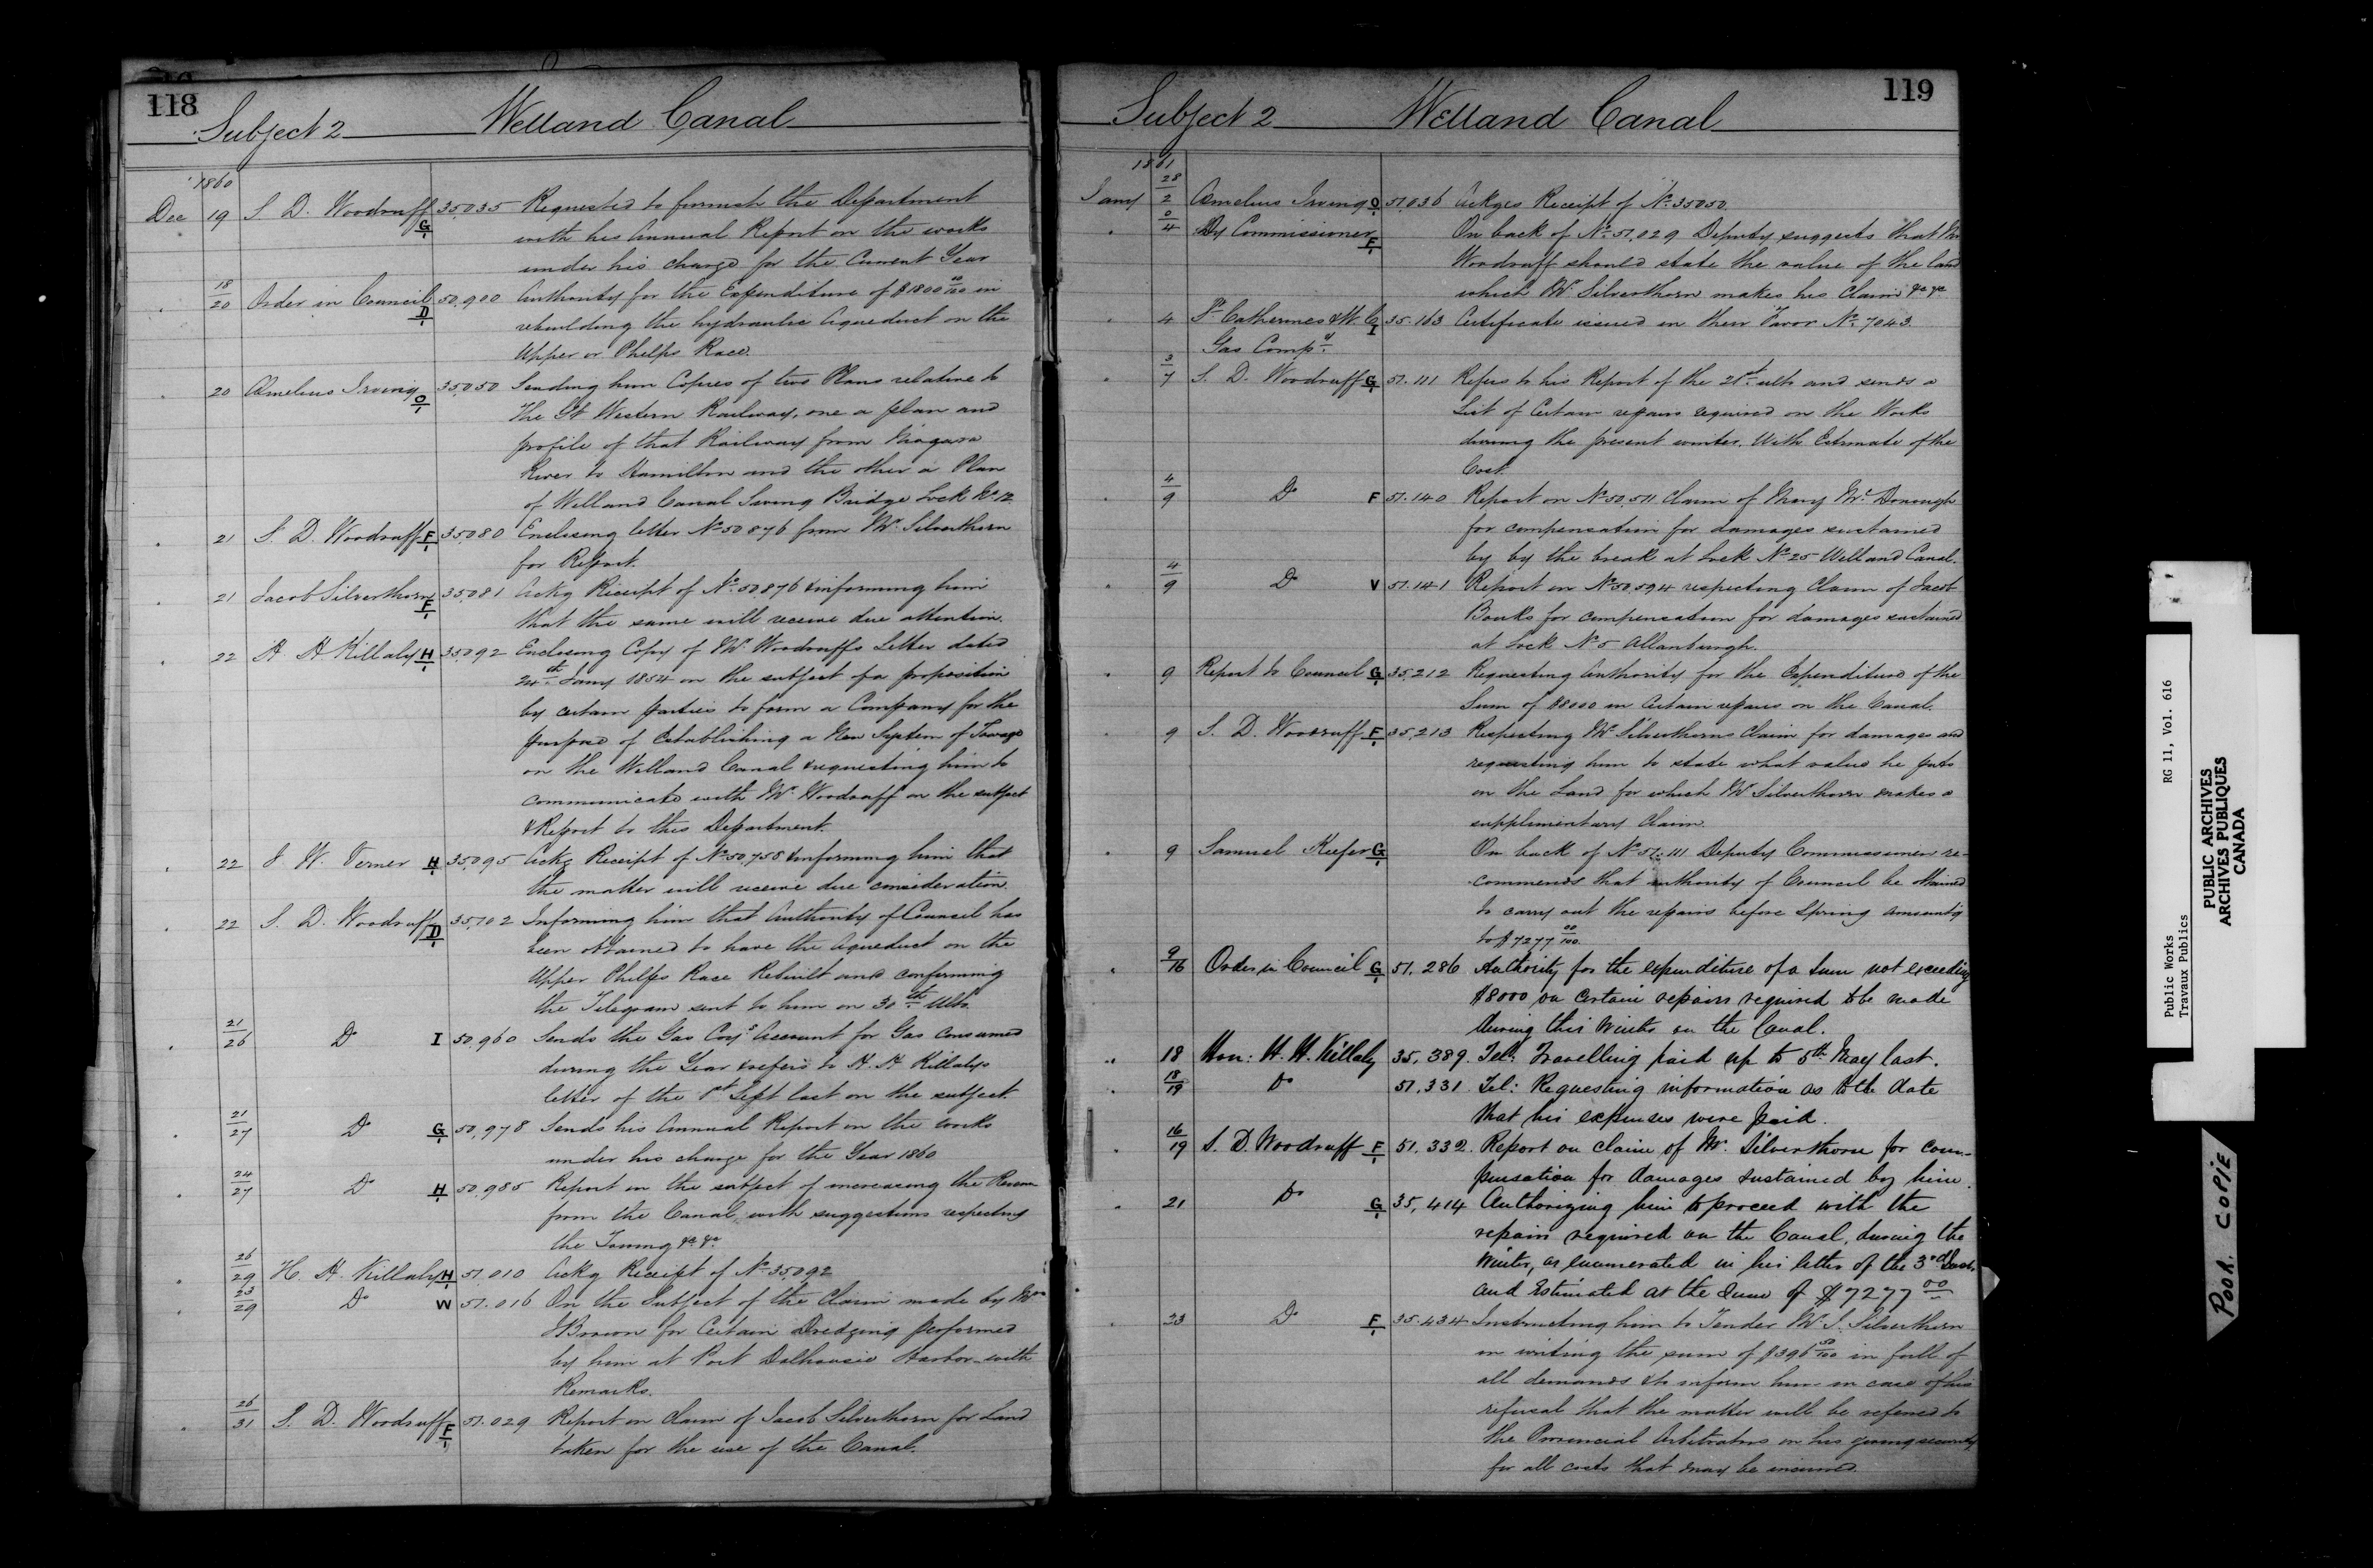 118
Subject 2 Welland Canal
1860
Dec 19 S. D. Woodruff G/1 35035 Requested to furnish the Department
with his Annual Report on the works
under his charge for the Current Year
18/20 Order in Council D/1 50,900 Authority for the Expenditure of $1800 00/100 in
rebuilding the hydraulic Aqueduct on the
Upper or Phelps Race.
20 Æmelius Irving O/1 35050 Sending him Copies of two Plans relative to
the Gt Western Railway, one a plan and
profile of that Railway from Niagara
River to Hamilton and the other a Plan
of Welland Canal Swing Bridge Lock No 12
21 S. D. Woodruff F/1 35080 Enclosing letter No 50876 from Mr Silverthorn
for Report.
21 Jacob Silverthorn F/1 35081 Ackg Receipt of No 50,876 & informing him
that the same will receive due attention.
22 H. H Killaly H/1 35092 Enclosing Copy of Mr Woodruffs Letter dated
24th Jany 1854 on the subject of a proposition
by certain parties to form a Company for the
purpose of Establishing a New System of Towage
on the Welland Canal & requesting him to
communicate with Mr Woodruff on the subject
& Report to this Department.
22 J. W. Verner H/1 35095 Ackg Receipt of No 50,758 & informing him that
the matter will receive due consideration.
22 S. D. Woodruff D/1 35,102 Informing him that Authority of Council has
been obtained to have the Aqueduct on the
Upper Phelps Race Rebuilt and confirming
the Telegram sent to him on 30th Ulto.
21/26 Do I 50,960 Sends the Gas Coys Account for Gas consumed
during the Year & refers to H. H Killalys
letter of the 1st Sept last on the subject.
21/27 Do G/1 50,978 Sends his Annual Report on the works
under his charge for the Year 1860
24/27 Do H/1 50,985 Report on the subject of increasing the Revenue
from the Canal, with suggestions respecting
the Towing &c &c
26/29 H. H. Killaly H/1 51,010 Ackg Receipt of No 35,092
23/29 Do W 51.016 On the Subject of the Claim made by Mr
J Brown for Certain Dredging performed
by him at Port Dalhousie Harbor with
Remarks.
26/31 S. D. Woodruff F/1 51.029 Report on Claim of Jacob Silverthorn for Land
taken for the use of the Canal.
119
Subject 2 Welland Canal
1861
Jany 28/2 Æmelius Irving O/1 51,036 Ackges Receipt of No 35050.
0/4 Dy Commissioner F/1 On back of No 51,029 Deputy suggests that Mr
Woodruff should state the value of the land
which Mr Silverthorn makes his Claim &c &c
4 St Catherines & W. C I 35.163 Certificate issued in their Favor No 7043.
Gas Compy.
3/7 S. D. Woodruff G/1 51.111 Refers to his Report of the 21st ulto and sends a
List of Certain repairs required on the Works
during the present winter. With Estimate of the
Cost.
4/9 Do F 51.140 Report on No 50,511 Claim of Mary McDonough
for compensation for damages sustained
by by the break at Lock No 25 Welland Canal.
4/9 Do V 51.141 Report on No 50,594 respecting Claim of Jacob
Bouks for compensation for damages sustained
at Lock No 5 Allanburgh.
9 Report to Council G/1 35,212 Requesting Authority for the Expenditure of the
Sum of $8000 in Certain repairs on the Canal.
9 S. D. Woodruff F/1 35,213 Respecting Mr Silverthorns Claim for damages and
requesting him to state what value he puts
on the Land for which Mr Silverthorn makes a
supplimentary Claim.
9 Samuel Keefer G/1 On back of No 51.111 Deputy Commissioner re-
commends that authority of Council be obtained
to carry out the repairs before Spring amountg
to $7277 00/100.
9/16 Order in Council G/1 51,286 Authority for the expenditure of a sum not exceeding
$8000 on certain repairs required to be made
during this Winter on the Canal.
18 Hon: H. H. Killaly 35,389. Tel: Travelling paid up to 5th May last.
18/19 Do 51,331 Tel: Requesting information as to the date
that his expenses were paid.
16/19 S. D. Woodruff F/1 51,332. Report on claim of Mr Silverthorn for com-
pensation for damages sustained by him.
21 Do G/1 35,414 Authorizing him to proceed with the
repairs required on the Canal, during the
Winter, as enumerated in his letter of the 3rd Inst.
and Estimated at the Sum of $7277 00
23 Do F/1 35.434 Instructing him to Tender Mr J. Silverthorn
in writing the sum of $396 50/100 in full of
all demands & to inform him in case of his
refusal that the matter will be referred to
the Provincial Arbitrators on his giving security
for all costs that may be incurred.
Public Works RG 11, Vol. 616
Travaux Publics
PUBLIC ARCHIVES
ARCHIVES PUBLIQUES
CANADA
POOR COPIE